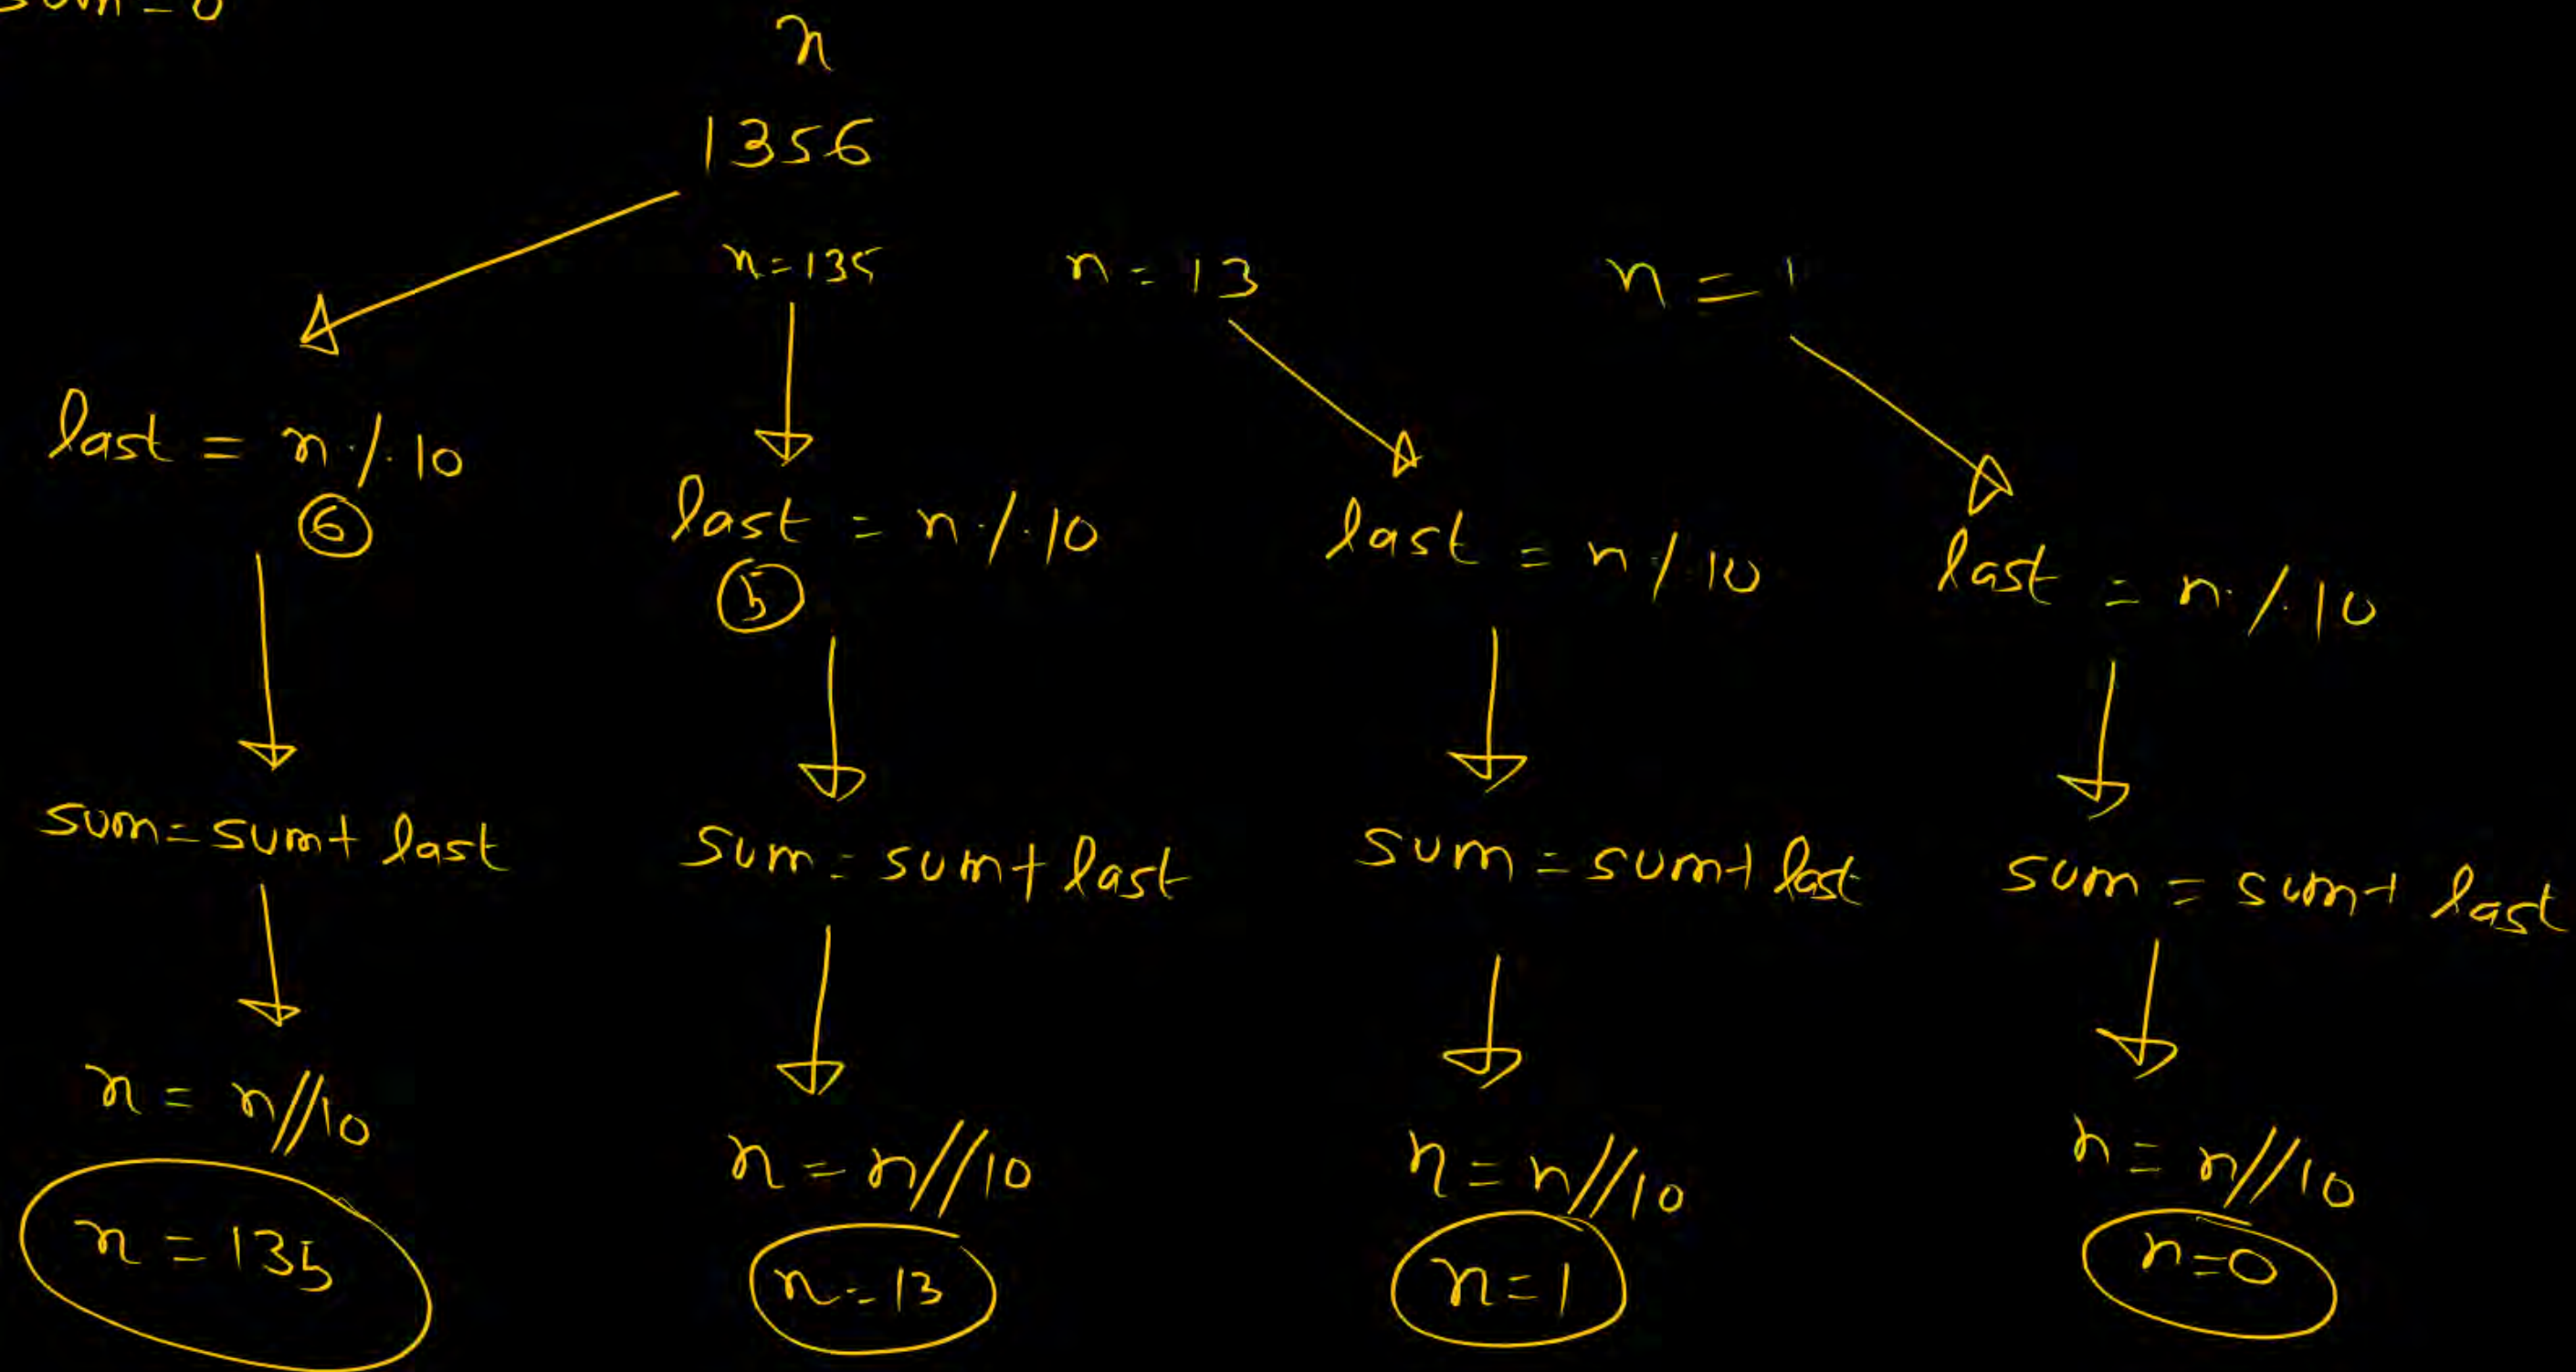 sum = 0
n
1356
n = 135
n = 13
n = 1
last = n % 10
6
last = n % 10
5
last = n % 10
last = n % 10
sum = sum + last
sum = sum + last
sum = sum + last
sum = sum + last
n = n//10
n = n//10
n = n//10
n = n//10
n = 135
n = 13
n = 1
n = 0